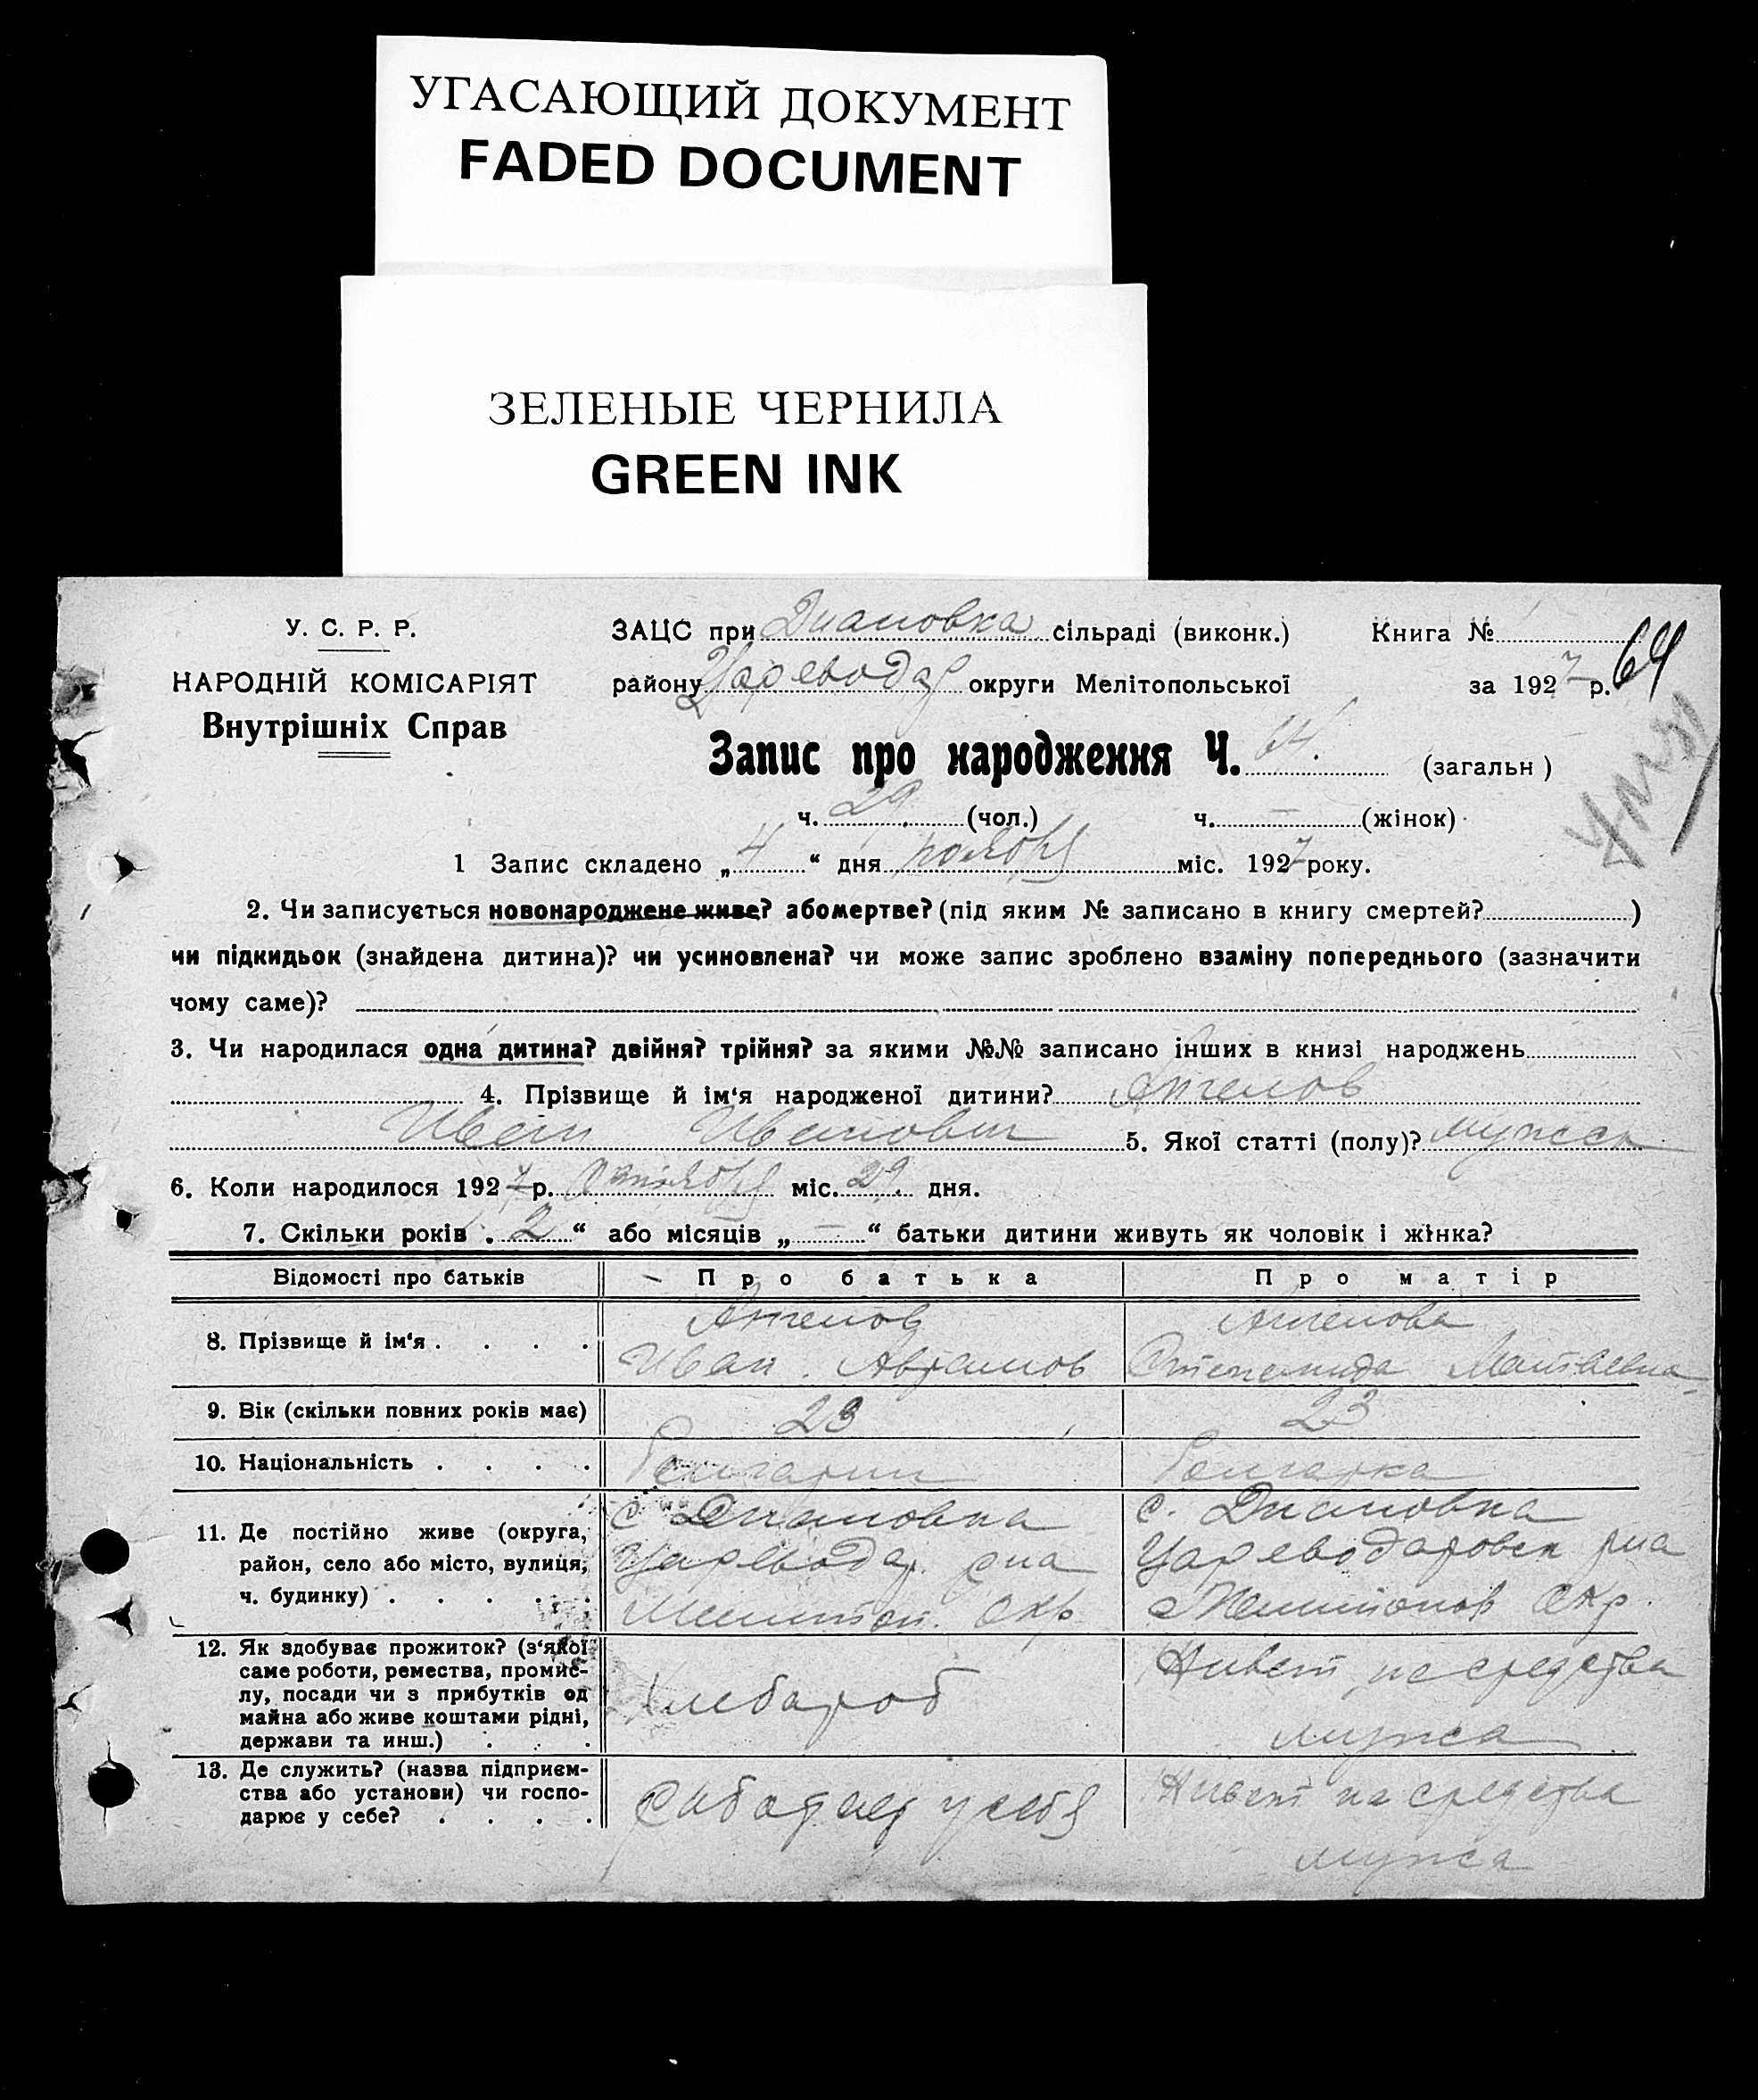 УГАСАЮЩИЙ ДОКУМЕНТ
FADED DOCUMENT
ЗЕЛЕНЫЕ ЧЕРНИЛА
GREEN INK
У. С. Р. Р.
НАРОДНІЙ КОМІСАРІЯТ
Внутрішніх Справ
ЗАЦС при Диановка сільраді (виконк.) Книга №
району Цареводар округи Мелітопольської за 1927 р. 64
Запис про народження Ч. 64. (загальн)
ч. 29 (чол.) ч. — (жінок)
1 Запис складено „4“ дня ноября міс. 1927 року.
2. Чи записується новонароджене живе? або мертве? (під яким № записано в книгу смертей? )
чи підкидьок (знайдена дитина)? чи усиновлена? чи може запис зроблено взаміну попереднього (зазначити
чому саме)?
3. Чи народилася одна дитина? двійня? трійня? за якими №№ записано інших в книзі народжень
4. Прізвище й ім‘я народженої дитини? Ангелов
Иван Иванович 5. Якої статті (полу)? мужск
6. Коли народилося 1927 р. Октября міс. 29. дня.
7. Скільки років „2“ або місяців „—“ батьки дитини живуть як чоловік і жінка?
Відомості про батьків Про батька Про матір
8. Прізвище й ім‘я . . . . Ангелов Ангелова
Иван Аврамов Матвеевна
9. Вік (скільки повних років має) 23 23
10. Національність . . . . Болгарин Болгарка
11. Де постійно живе (округа, с Диановка с. Диановка
район, село або місто, вулиця, Цареводар. рна Цареводаровск рна
ч. будинку) . . . . . Мелитоп. Окр Мелитопов Окр.
12. Як здобуває прожиток? (з‘якої
саме роботи, ремества, промис-
лу, посади чи з прибутків од
майна або живе коштами рідні,
держави та инш.) . . . Хлебароб Живет на средства
мужа
13. Де служить? (назва підприєм-
ства або установи) чи госпо-
дарює у себе? . . . . у себя Живет на средства
мужа